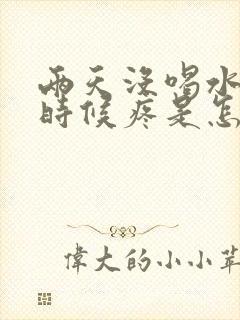 兩天沒喝水
時候疼是怎
偉大的小小草